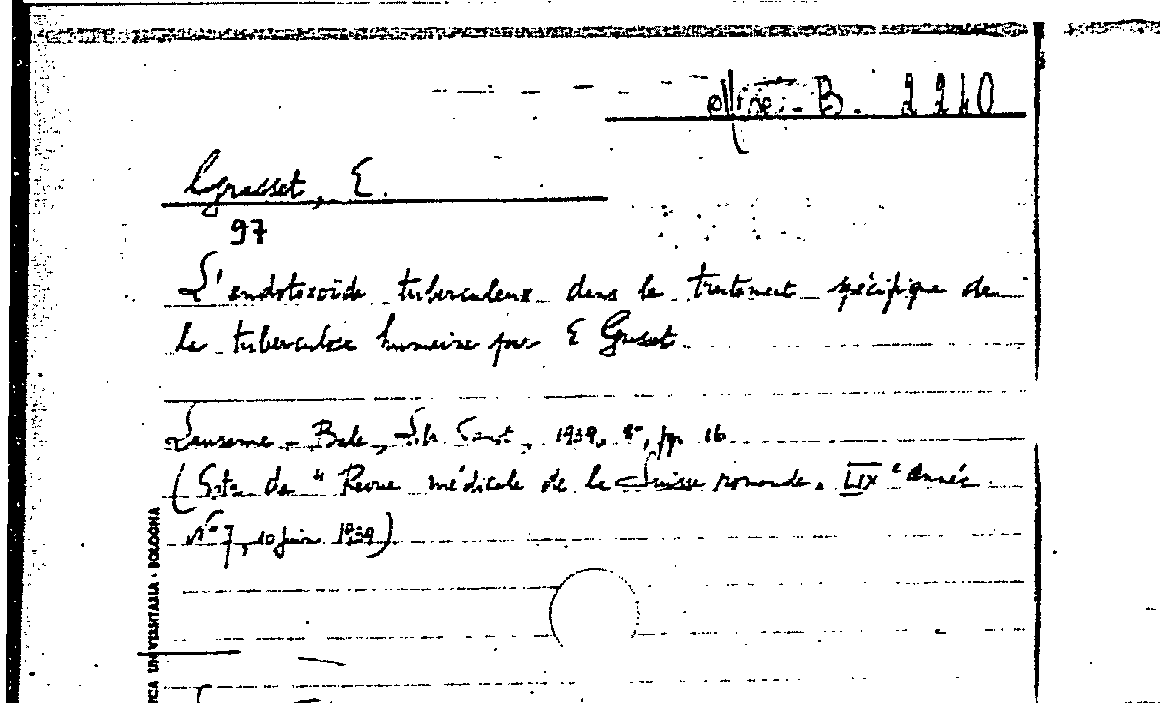 Misc. B. 2240
Grasset, E.
97
L'endotoxoïde tuberculeux dans le traitement spécifique de
la tuberculose humaine par E Grasset.
Lausanne - Bale, 1939, 8°, pp. 16
(Estr. da "Revue médicale de la Suisse romande. LIX e année
N° 7, 10 juin 1939)
UNIVERSITARIA - BOLOGNA